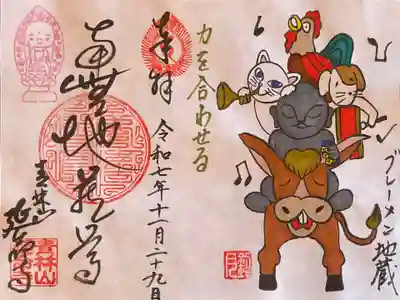 ブレーメン地蔵
力を合わせる
奉拝
令和七年十一月二十九日
南無地蔵尊
延命寺